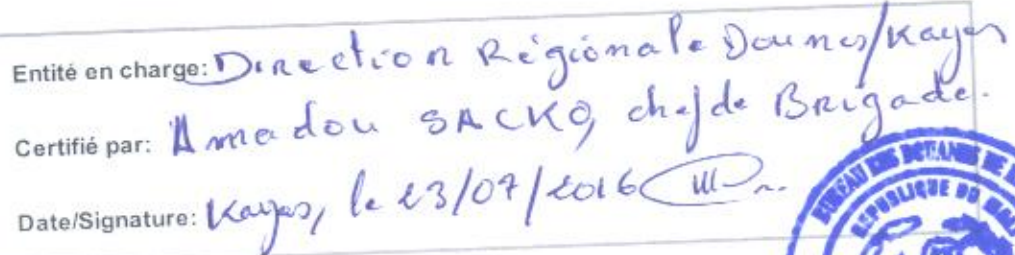 Entité en charge: Direction Régionale Dounes/Kayes
Certifié par: Amadou SACKO, chef de Brigade.
Date/Signature: Kayes, le 23/07/2016
BUREAU DES DOUANES DE
REPUBLIQUE DU MALI